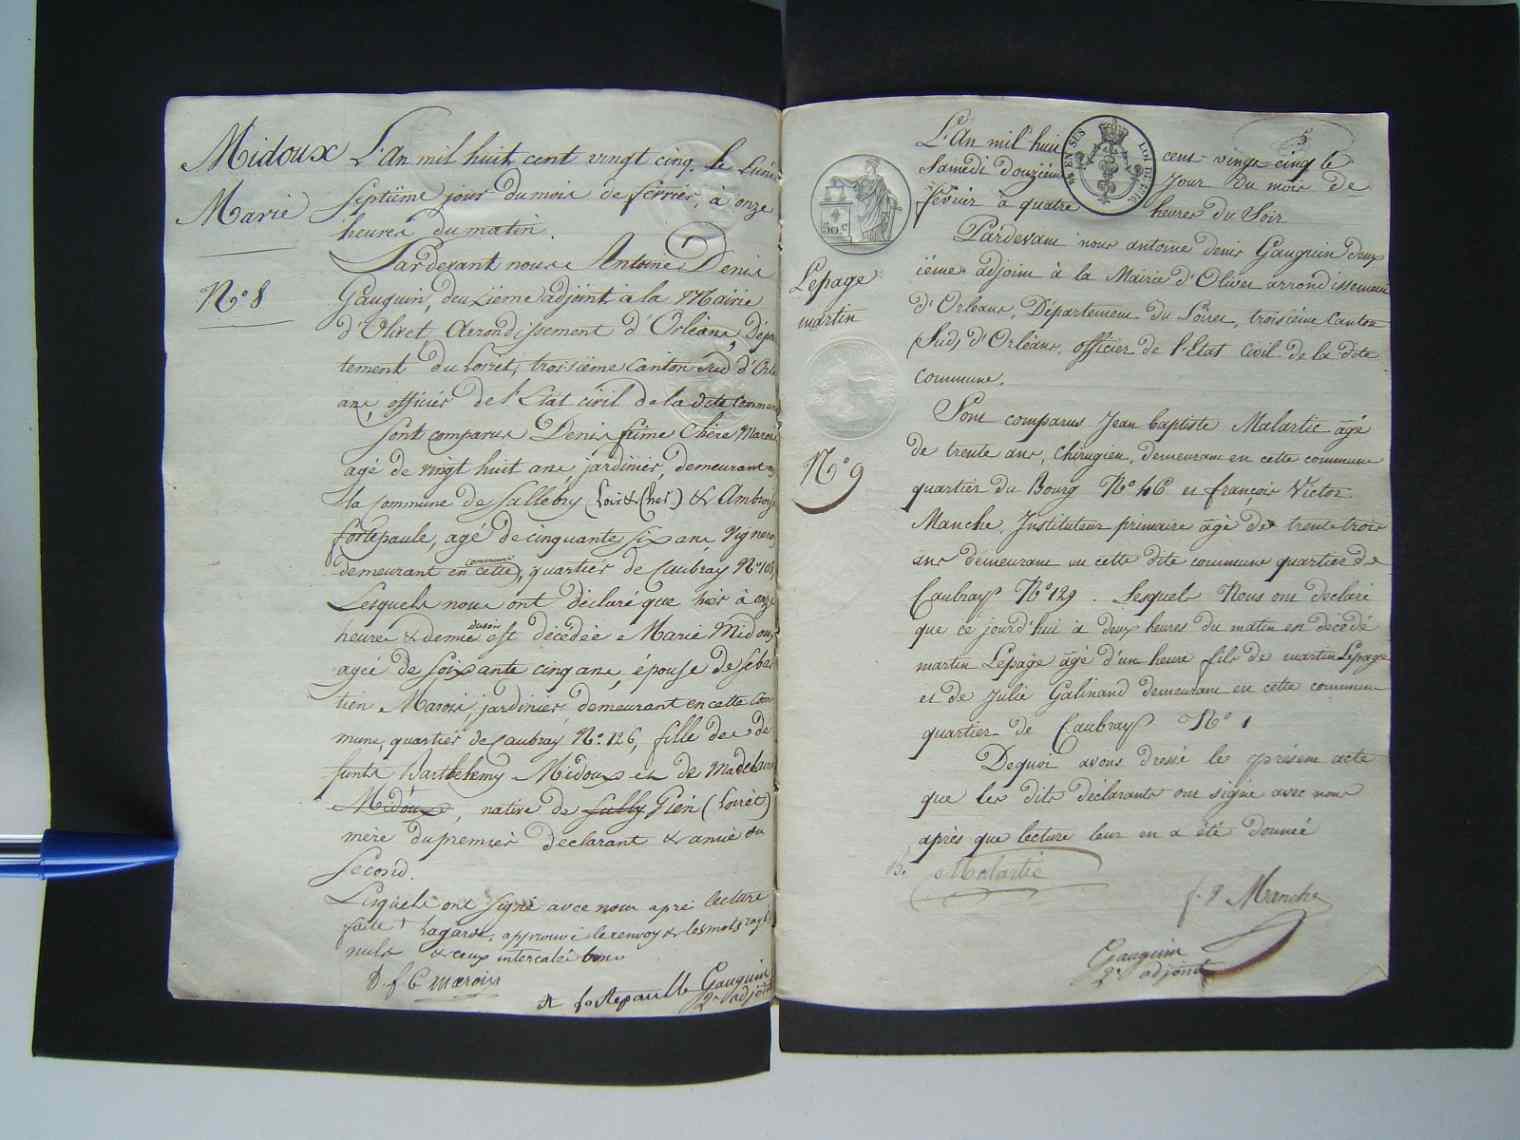 Midoux
Marie
N.° 8
L'An mil huit cent vingt cinq. le Lundi
Septiême jour du mois de février, à onze
heures du matin.
Pardevant nous Antoine Denis
Gauguin, deuxiême adjoint à la Mairie
d'Olivet, Arrondissement d'Orléans, Dépar
tement du Loiret, troisiême Canton Sud d'Orlé
ans, officier de l'Etat civil de la dite commune
Sont comparus Denis Chère Marois
agé de vingt huit ans, jardinier, demeurant
la commune de Sallebry (Loir & Cher) & Ambroise
fortepaule, agé de cinquante six ans, vigneron
commune
demeurant en cette, quartier de Caubray N.°
Lesquels nous ont déclaré que hier à onze
du soir
heures & demie est décédée Marie Midoux
agée de soixante cinq ans, épouse de Sebas
tien Marois, jardinier demeurant en cette com
mune, quartier de Caubray N.° 126, fille de dé
funts Barthelemy Midoux et de Madelaine
Midoux, native de Sully Gien (Loiret)
mère du premier déclarant & amie du
Second.
Lesquels ont signé avec nous après lecture
faite approuvé le renvoy & les mots rayés
nuls & ceux intercalés bons
D. f. C marois
A fortepaulle Gauguin
2e adjoint
5
L'An mil huit cent vingt cinq le
Samedi douzième Jour du mois de
février à quatre heures du Soir
Pardevant nous antoine denis Gauguin deux
ième adjoint à la Mairie d'Olivet arrondissement
d'Orléans, Département du Loiret, troisième Canton
(Sud) d'Orléans, officier de l'Etat Civil de la dite
commune.
Lepage
martin
N.° 9
50 c
Sont comparus Jean baptiste Malartic âgé
de trente ans, Chirugien, demeurant en cette commune
quartier du Bourg N.° 46 et françois Victor
Manche, Instituteur primaire âgé de trente trois
ans demeurant en cette dite commune quartier de
Caubray N.° 129. Lesquels Nous ont déclaré
que ce jourd'hui à deux heures du matin est décédé
martin Lepage âgé d'un heure fils de martin Lepage
et de Julie Galinand demeurant en cette commune
quartier de Caubray N.° 1
Dequoi avons dressé le présent acte
que les dits déclarants ont signé avec nous
après que lecture leur en a été donnée
B. Malartic
f. V Manche
Gauguin
2e adjoint